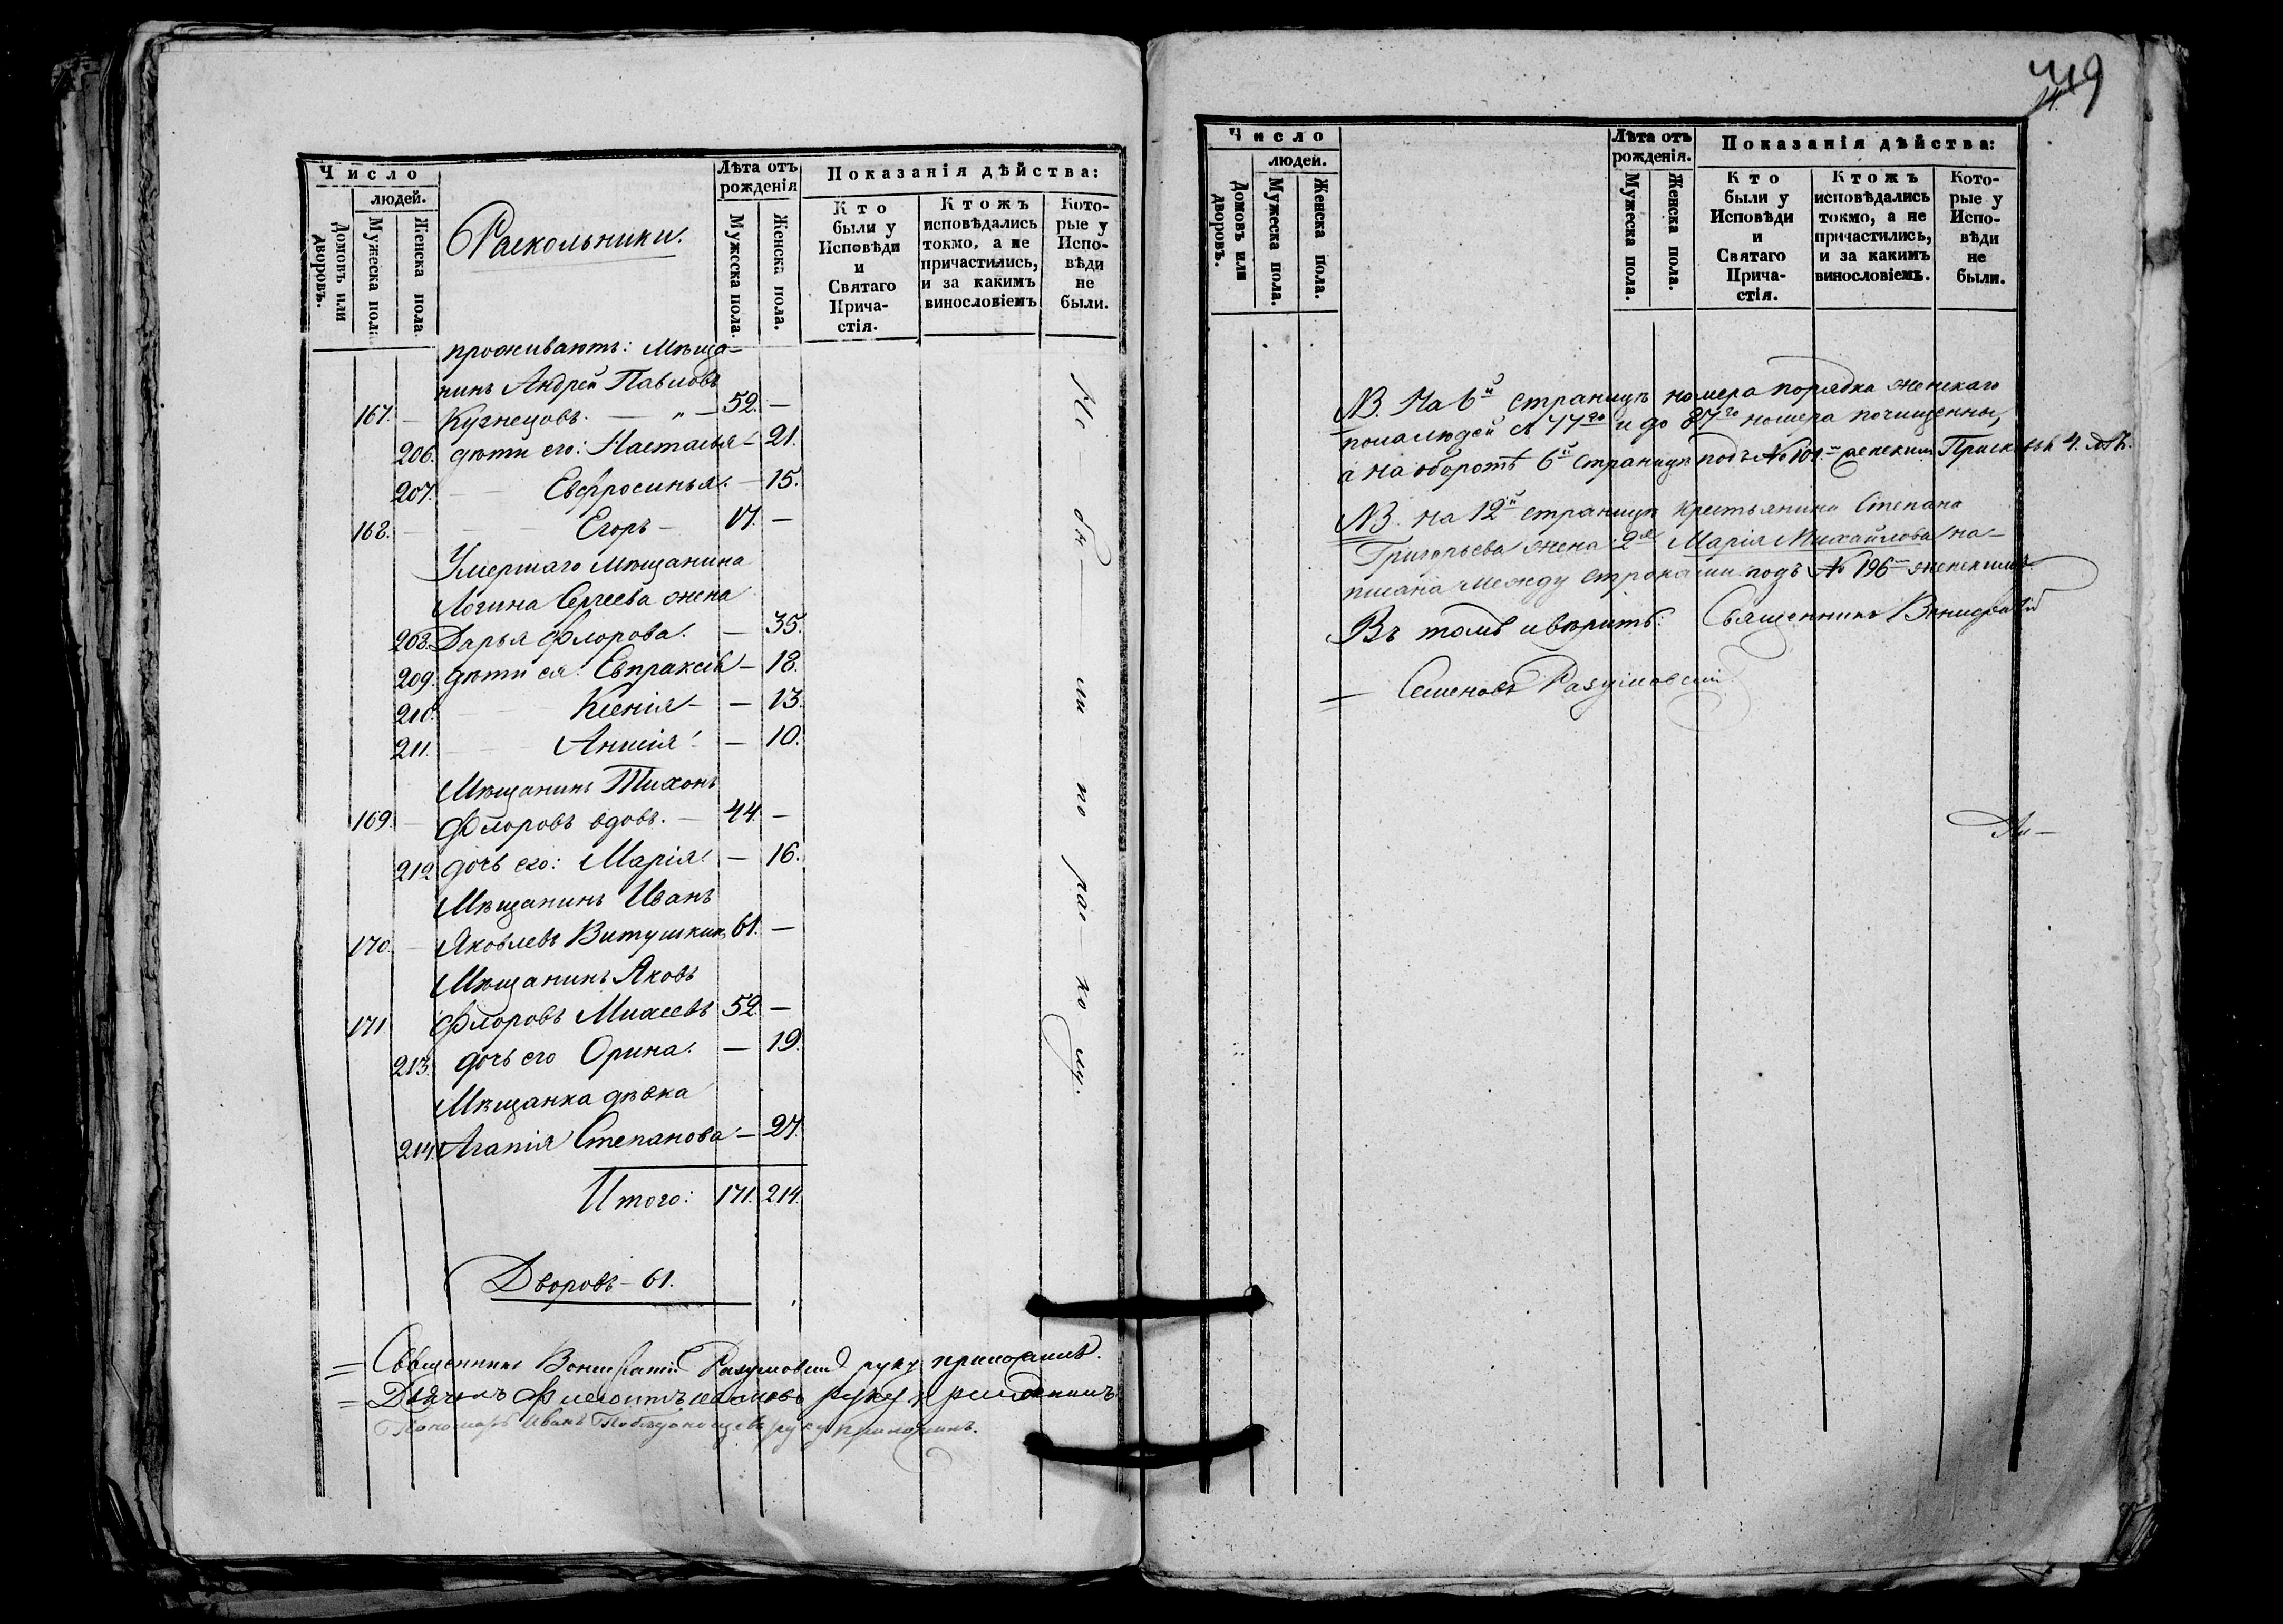 Число
людей.
Домовъ или дворовъ.
Мужеска пола
Женска пола.
Раскольники.
Лѣта отъ рожденія
Мужеска пола.
Женска пола.
Показанія дѣйства:
Кто были у Исповѣди и Святаго Прича-стія.
Ктожъ исповѣдались токмо, а не причастились, и за какимъ винословіемъ
Кото-рые у Испо-вѣди не были.
проживаютъ: Мѣща-
нинъ Андрей Павловъ
167. — Кузнецовъ. — „ — 52. —
206. дѣти его: Настасья — 21.
207. — — Евфросинья. — 15.
168. — — — Егоръ — 17. —
Умершаго мѣщанина
Логина Сергеева жена
208. Дарья Флорова. — 35.
209. дѣти ея: Евпраксія — 18.
210. — — Ксенія — — 13.
211. — — Анисія — — 10.
Мѣщанинъ Тихонъ
169. — Флоровъ вдовъ. — 44. —
212 дочь его: Марія. — 16.
Мѣщанинъ Иванъ
170. — Яковлевъ Витушкинъ 61. —
Мѣщанинъ Яковъ
171. Флоровъ Михеевъ 52. —
213. дочь его Орина. — 19.
Мѣщанка дѣвка
214. Агапія Степанова — 27.
Не бы — ли — по рас — ко лу.
Итого: 171. 214.
Дворовъ — 61.
= Священникъ Вонифатій Разумовскій руку приложилъ.
= Дьячекъ руку приложилъ
Пономарь Иванъ Побѣдоносцевъ руку приложилъ.
419
Число
людей.
Домовъ или дворовъ.
Мужеска пола.
Женска пола.
Лѣта отъ рожденія.
Мужеска пола.
Женска пола.
Показанія дѣйства:
Кто были у Исповѣди и Святаго Прича-стія.
Ктожъ исповѣдались токмо, а не причастились, и за какимъ винословіемъ.
Кото-рые у Испо-вѣди не были.
NB. На 6й страницѣ номера порядка женскаго
пола людей съ 77го и до 87го номера почищены,
а на оборотѣ 6й страницы подъ № 101 женскимъ 4. лѣтъ.
NB. на 12й страницѣ крестьянина Степана
Григорьева жена 2я Марія Михайлова на-
писана между строками подъ № 196 женскимъ.
Въ томъ и вѣритъ: Священникъ Вонифатій
= Семеновъ Разумовскій